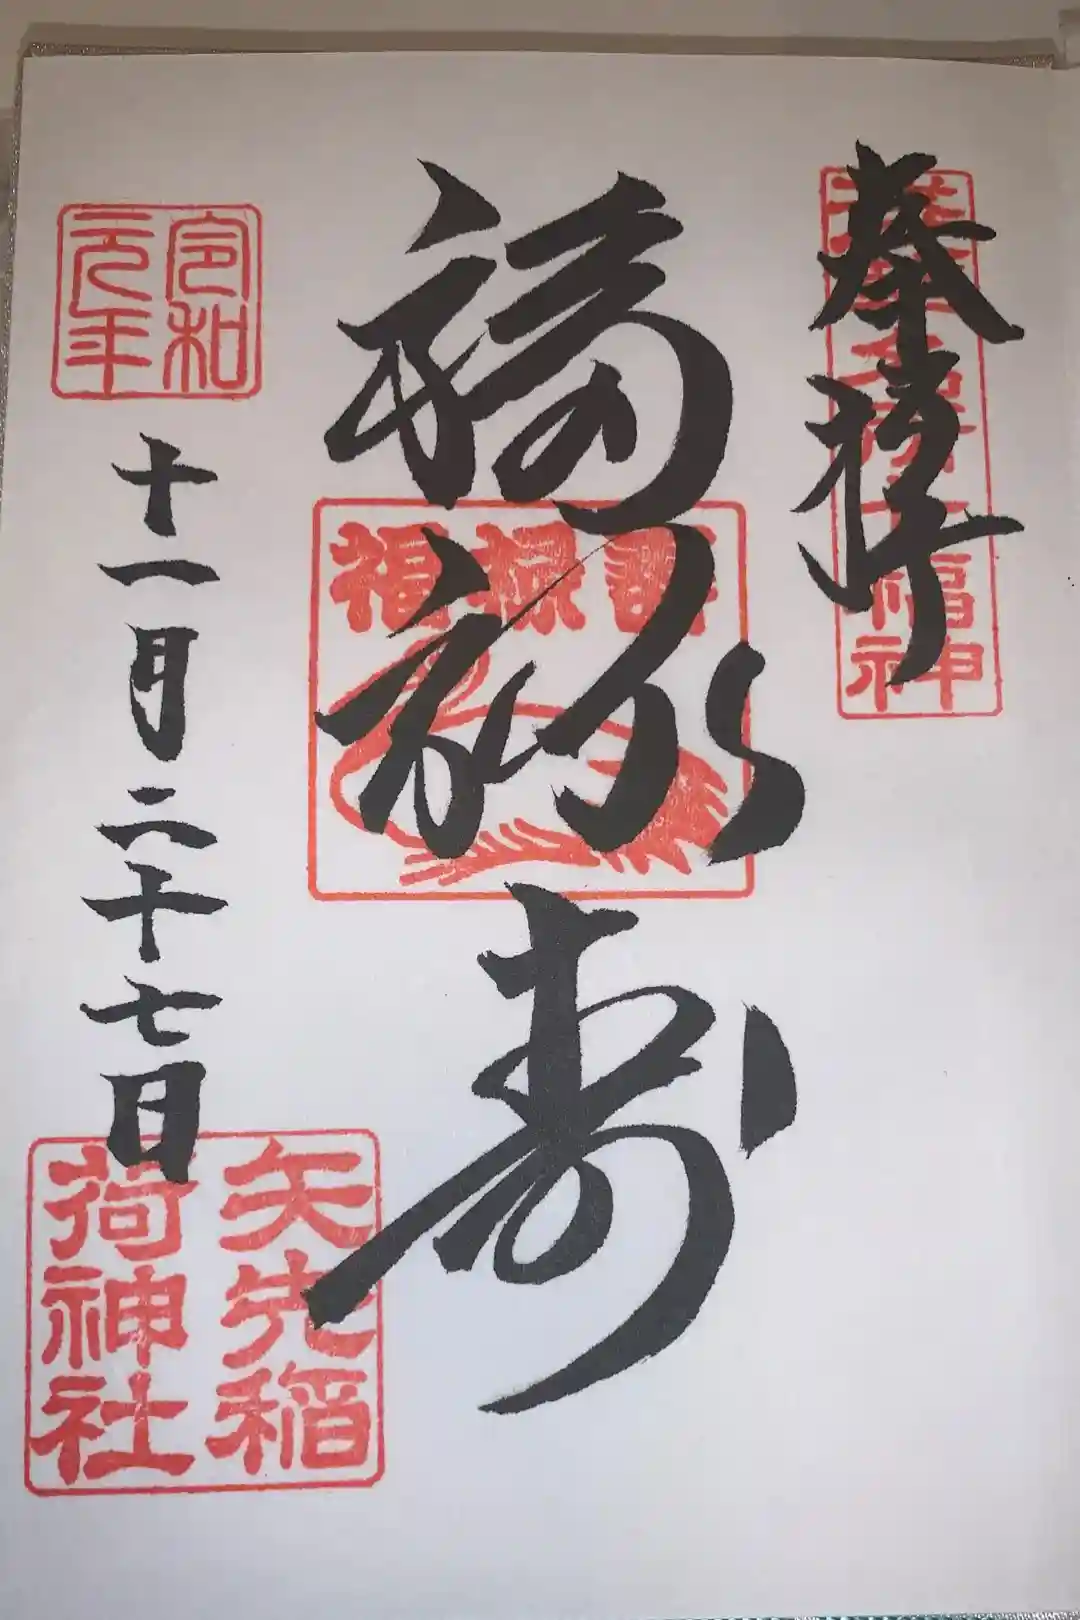 奉拝
浅草名所七福神
福禄寿
福禄寿
令和
元年
十一月二十七日
矢先稲
荷神社